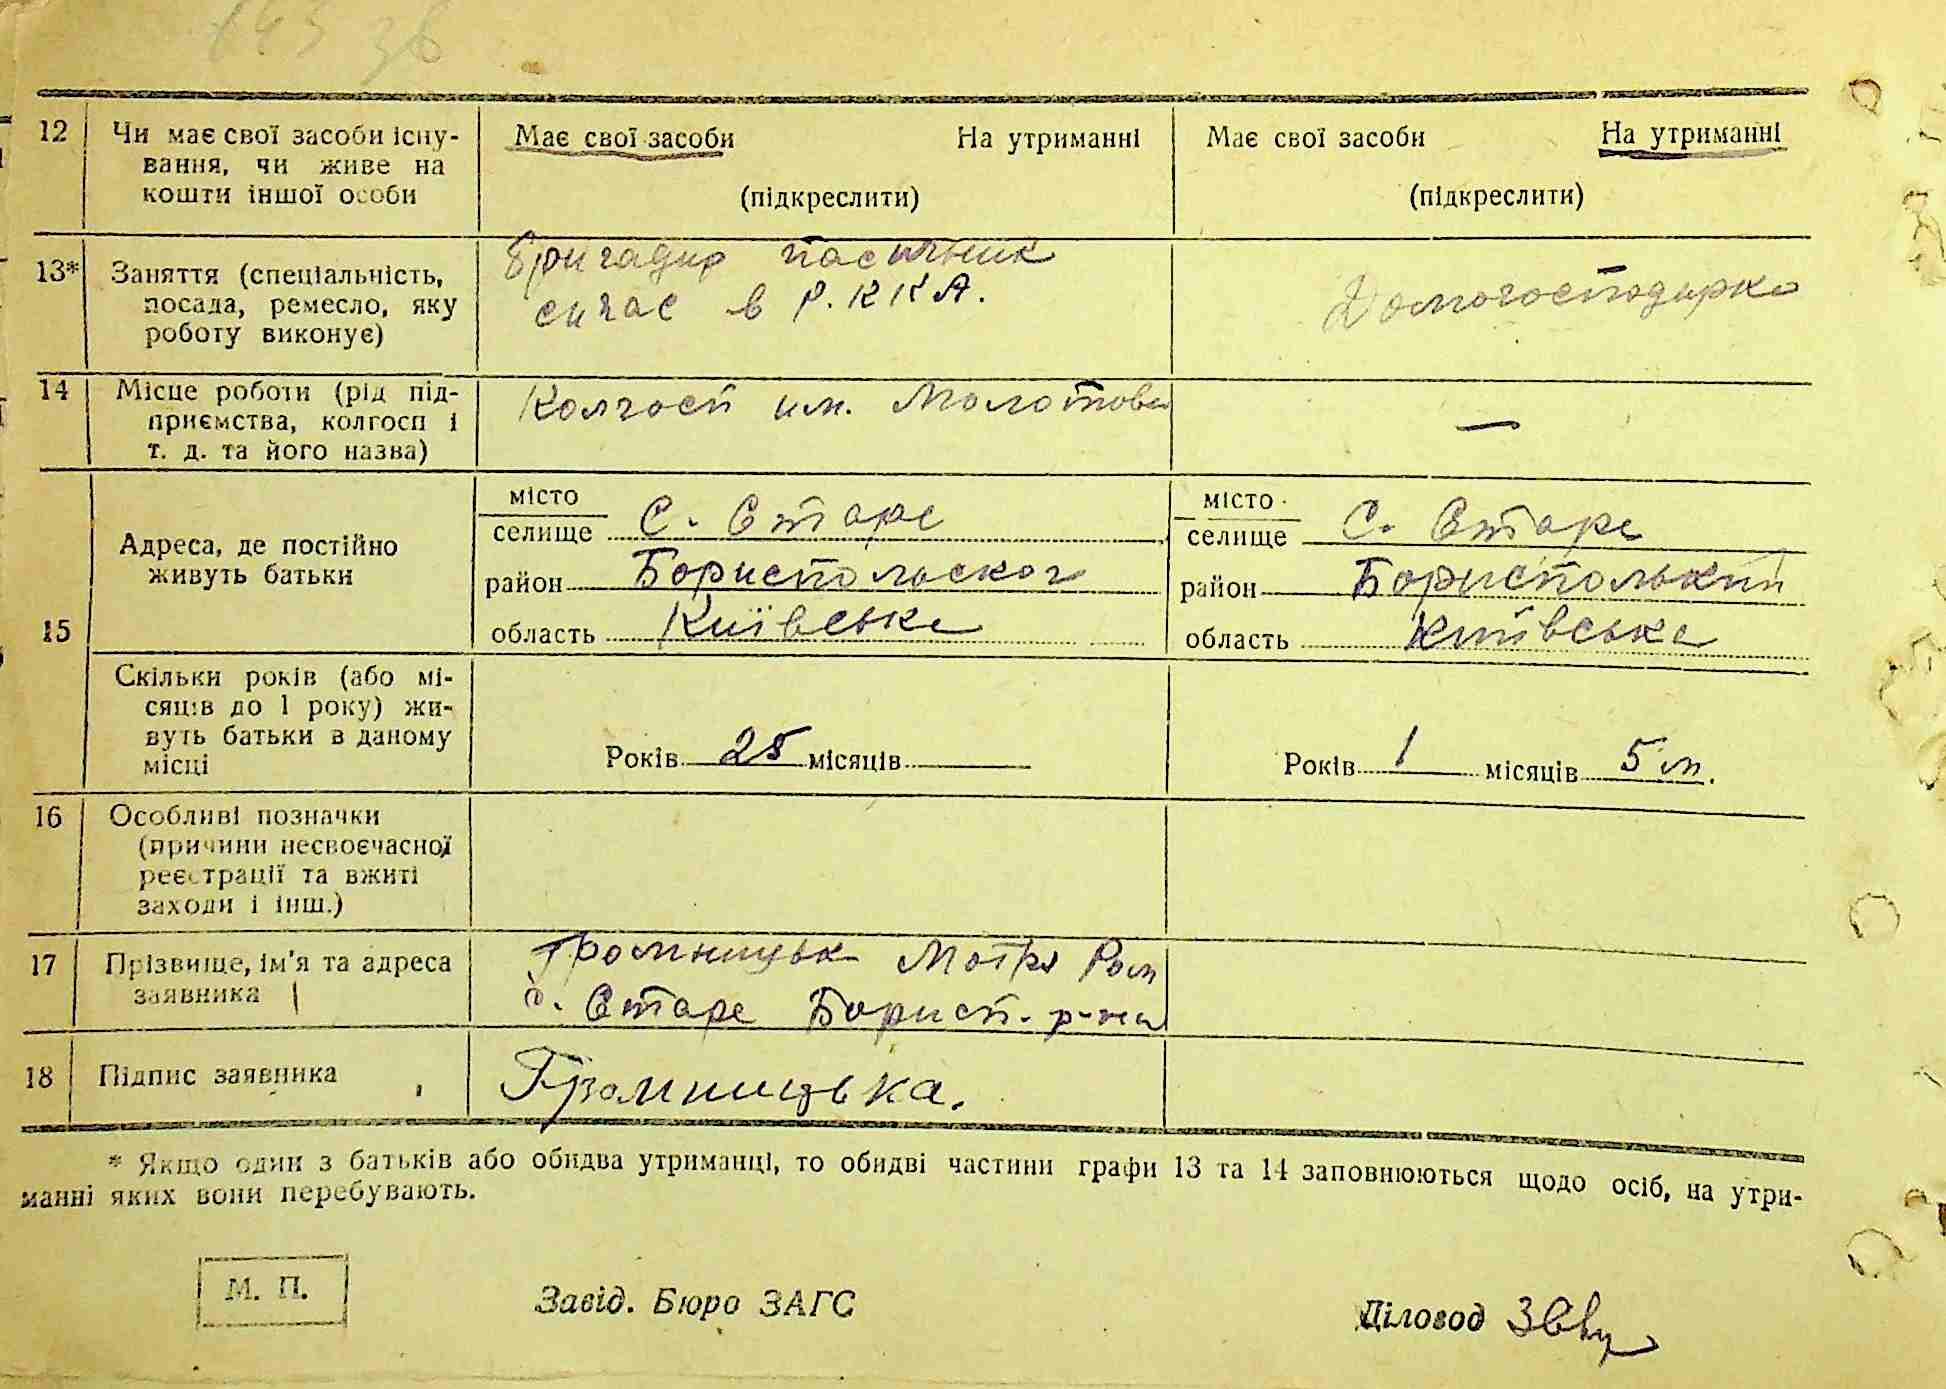 145 зв
12 Чи має свої засоби існу- Має свої засоби На утриманні Має свої засоби На утриманні
вання, чи живе на
кошти іншої особи (підкреслити) (підкреслити)
13* Заняття (спеціальність, Бригадир пасичник
посада, ремесло, яку сичас в Р.ККА. Домогосподарка
роботу виконує)
14 Місце роботи (рід під- Колгосп им. Молотова
приємства, колгосп і —
т. д. та його назва)
15
Адреса, де постійно
живуть батьки
місто місто
селище С. Старе селище С. Старе
район Бориспольског район Борисполький
область Київське область Київське
Скільки років (або мі-
сяців до 1 року) жи-
вуть батьки в даному Років 25 місяців Років 1 місяців 5 м.
місці
16 Особливі позначки
(причини несвоєчасної
реєстрації та вжиті
заходи і інш.)
17 Прізвище, ім'я та адреса Громницьк Мотря Ром
заявника с. Старе Борисп. р-на
18 Підпис заявника Громницька.
* Якщо один з батьків або обидва утриманці, то обидві частини графи 13 та 14 заповнюються щодо осіб, на утри-
манні яких вони перебувають.
М. П. Завід. Бюро ЗАГС Діловод